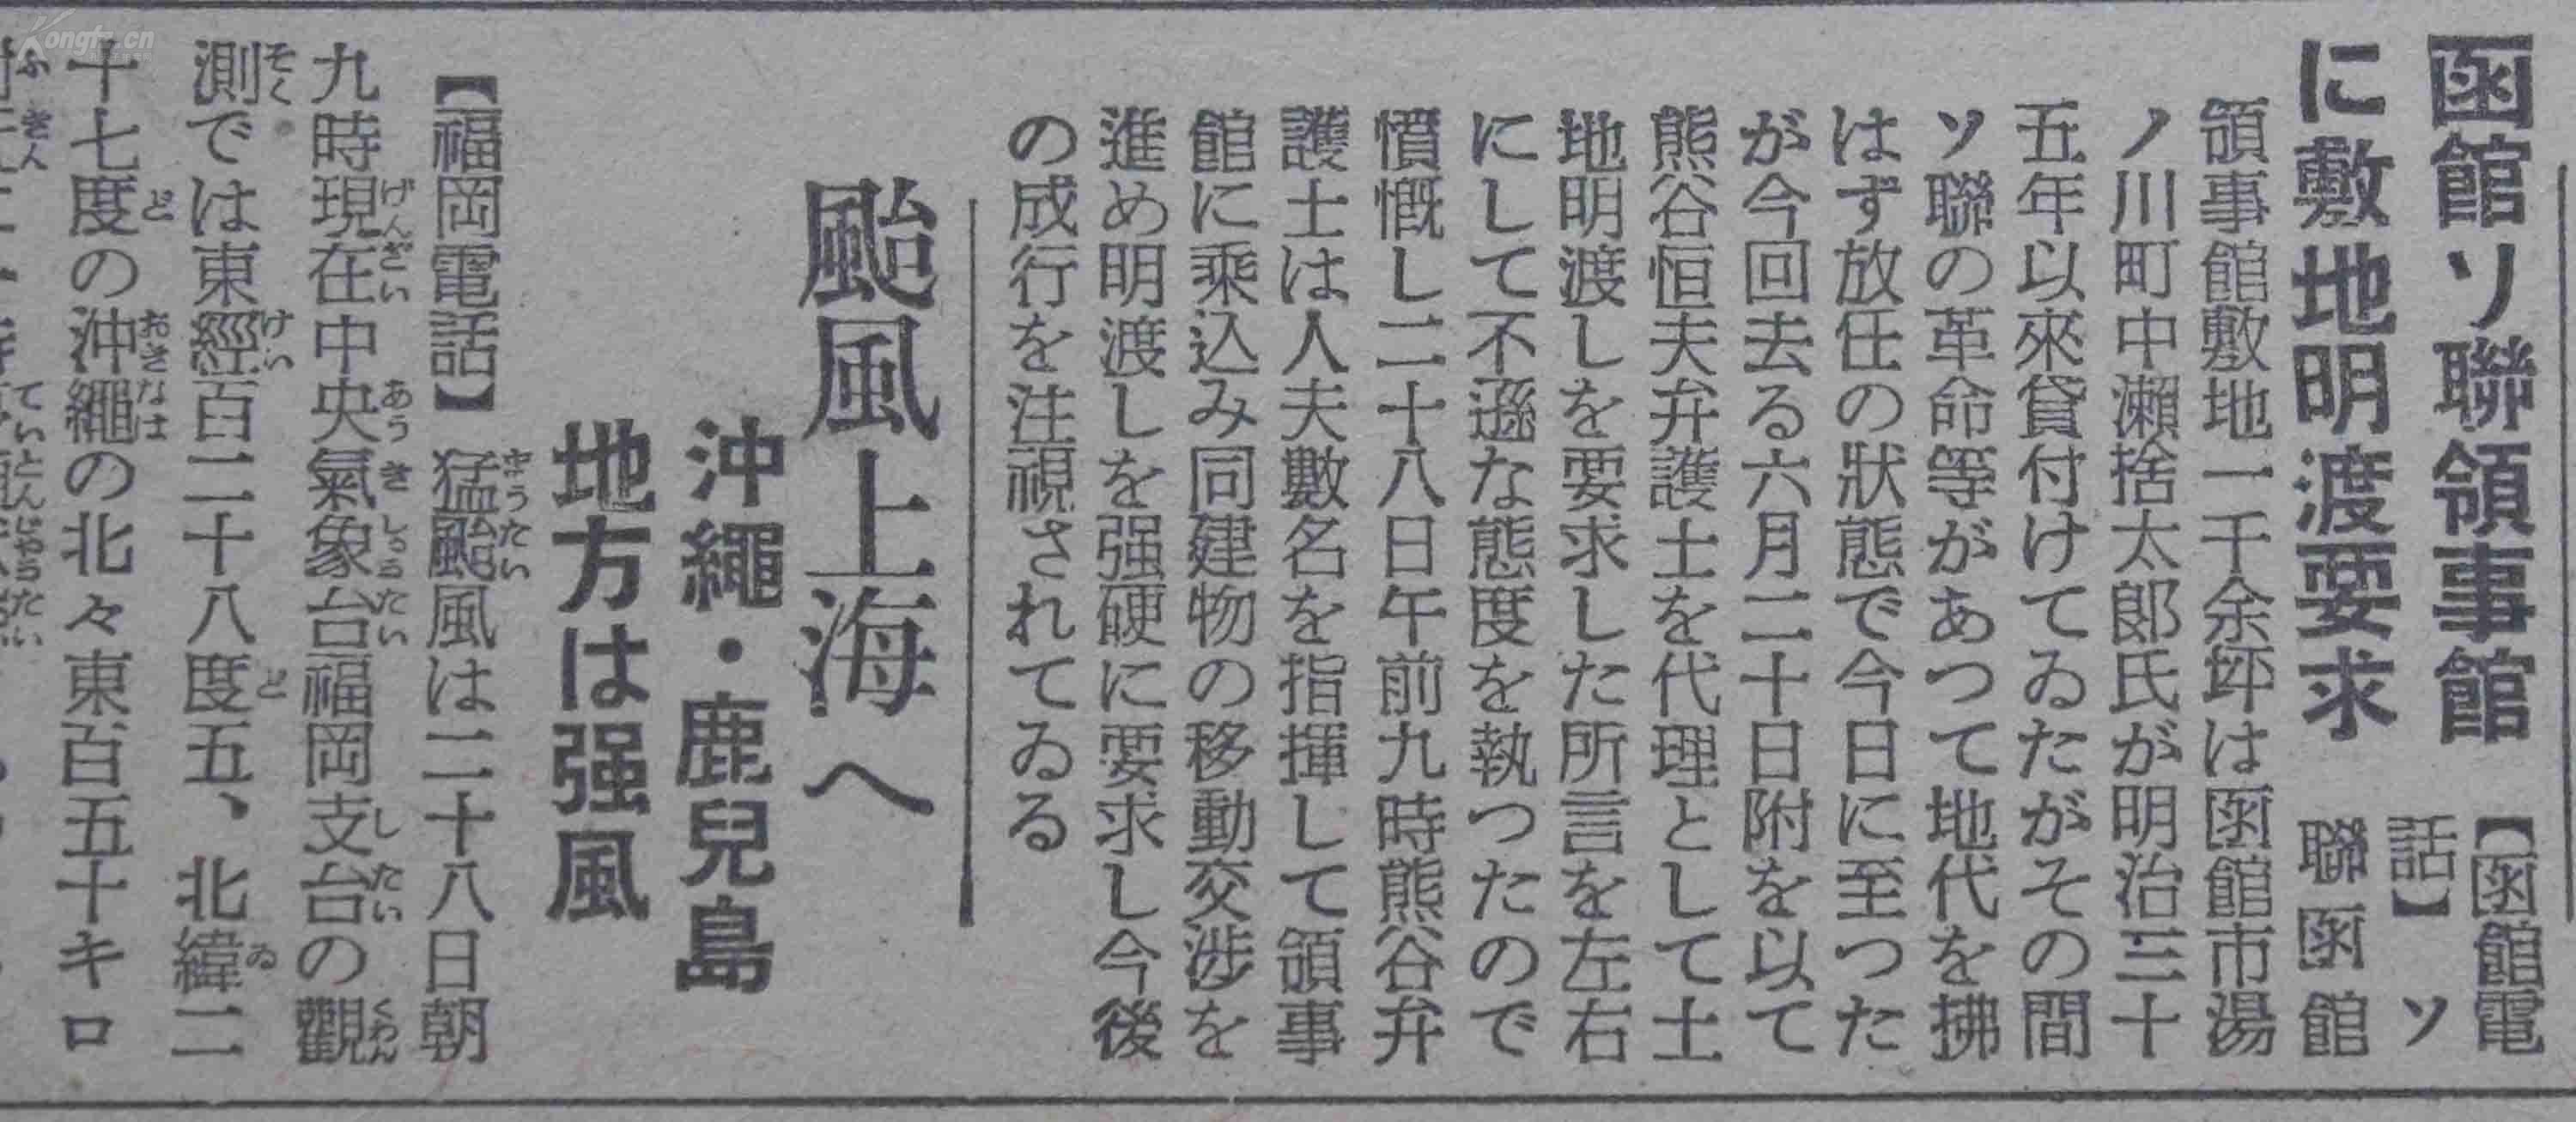 函館ソ聯領事館
に敷地明渡要求
【函館電
話】 ソ
聯函館
領事館敷地一千余坪は函館市湯
ノ川町中瀬捨太郎氏が明治三十
五年以來貸付けてゐたがその間
ソ聯の革命等があつて地代を拂
はず放任の狀態で今日に至つた
が今回去る六月二十日附を以て
熊谷恒夫弁護士を代理として土
地明渡しを要求した所言を左右
にして不遜な態度を執つたので
憤慨し二十八日午前九時熊谷弁
護士は人夫數名を指揮して領事
館に乘込み同建物の移動交涉を
進め明渡しを强硬に要求し今後
の成行を注視されてゐる
颱風上海へ
沖繩・鹿兒島
地方は强風
【福岡電話】猛颱風は二十八日朝
九時現在中央氣象台福岡支台の觀
測では東經百二十八度五、北緯二
十七度の沖繩の北々東百五十キロ
Kongfz.cn